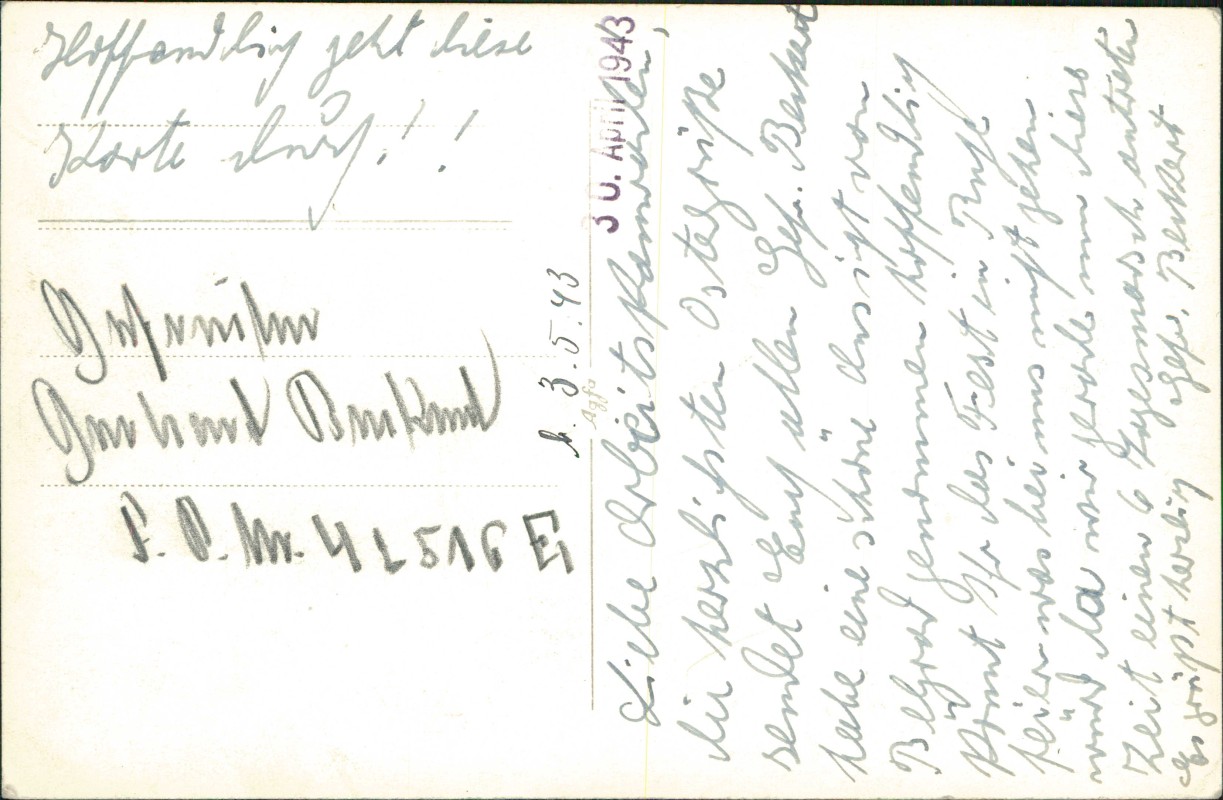 Hoffendlig geht diese
Karte durch!!
Gefreiter
Gerhard Benkert
F. P. Nr. 41516 E
b. 3.5.43
30. April 1943
Liebe Arbeitskameraden,
die herzlichsten Ostergrüße
sendet Euch allen Gefr. Benkert
habe eine schöne Ansicht von
Belgrad genommen hoffendlig
könnt Ihr das Fest in Ruhe
feiern was bei uns nicht gehen
wird da wir gerade um diese
Zeit einen 6 Tagesmarsch antreten
Es grüßt herzlig Gefr. Benkert